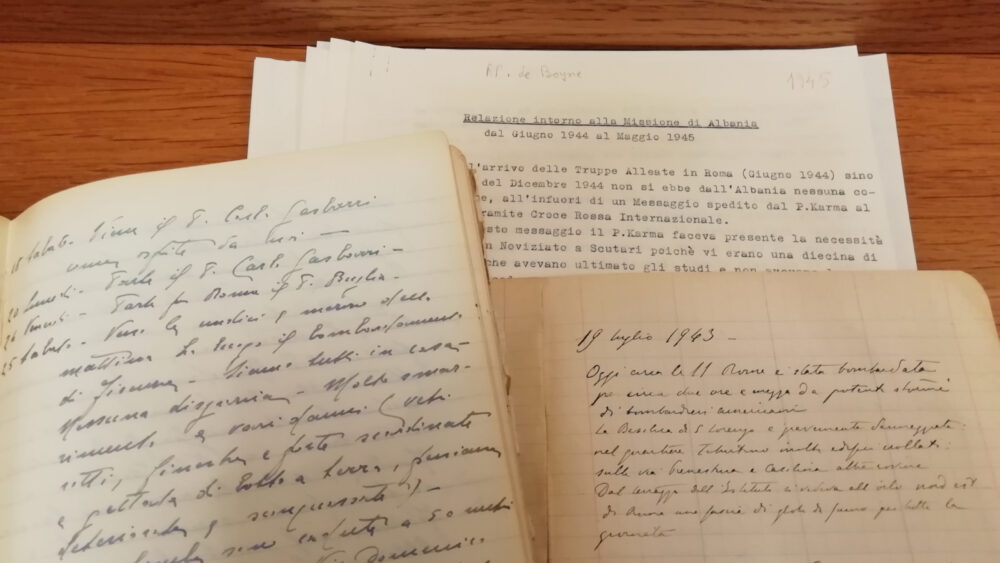 PP. de Boyne
1945
Relazione intorno alla Missione di Albania
dal Giugno 1944 al Maggio 1945
l'arrivo delle Truppe Alleate in Roma (Giugno 1944) sino
del Dicembre 1944 non si ebbe dall'Albania nessuna co-
e, all'infuori di un Messaggio spedito dal P.Karma al
ramite Croce Rossa Internazionale.
sto messaggio il P.Karma faceva presente la necessità
n Noviziato a Scutari poichè vi erano una diecina di
one avevano ultimato gli studi e non
18 Sabato. Viene il P. Carlo Gasbarri
come ospite da
20 Lunedì - Parte il P. Carlo Gasbarri -
24 Venerdì - Parte per Roma il P. Buglia -
25 Sabato - Verso le undici
mattina ha luogo il bombardamento
di - Siamo tutti in casa
Nessuna disgrazia - Molto smar-
rimento e vari danni (vetri
rotti, finestre e porte scardinate
e gettate di botto a terra,
sono cadute a 50 metri
Domenic
19 luglio 1943 -
Oggi circa le 11 Roma è stata bombardata
per circa due ore e mezza da potenti stormi
di bombardieri americani
La Basilica di S Lorenzo è gravemente danneggiata:
nel quartiere Tiburtino molti edifici crollati:
sulle via Prenestina e Casilina altre rovine
Dal terrazzo dell'Istituto si vedeva all nord est
di Roma una di di fumo per tutta la
giornata